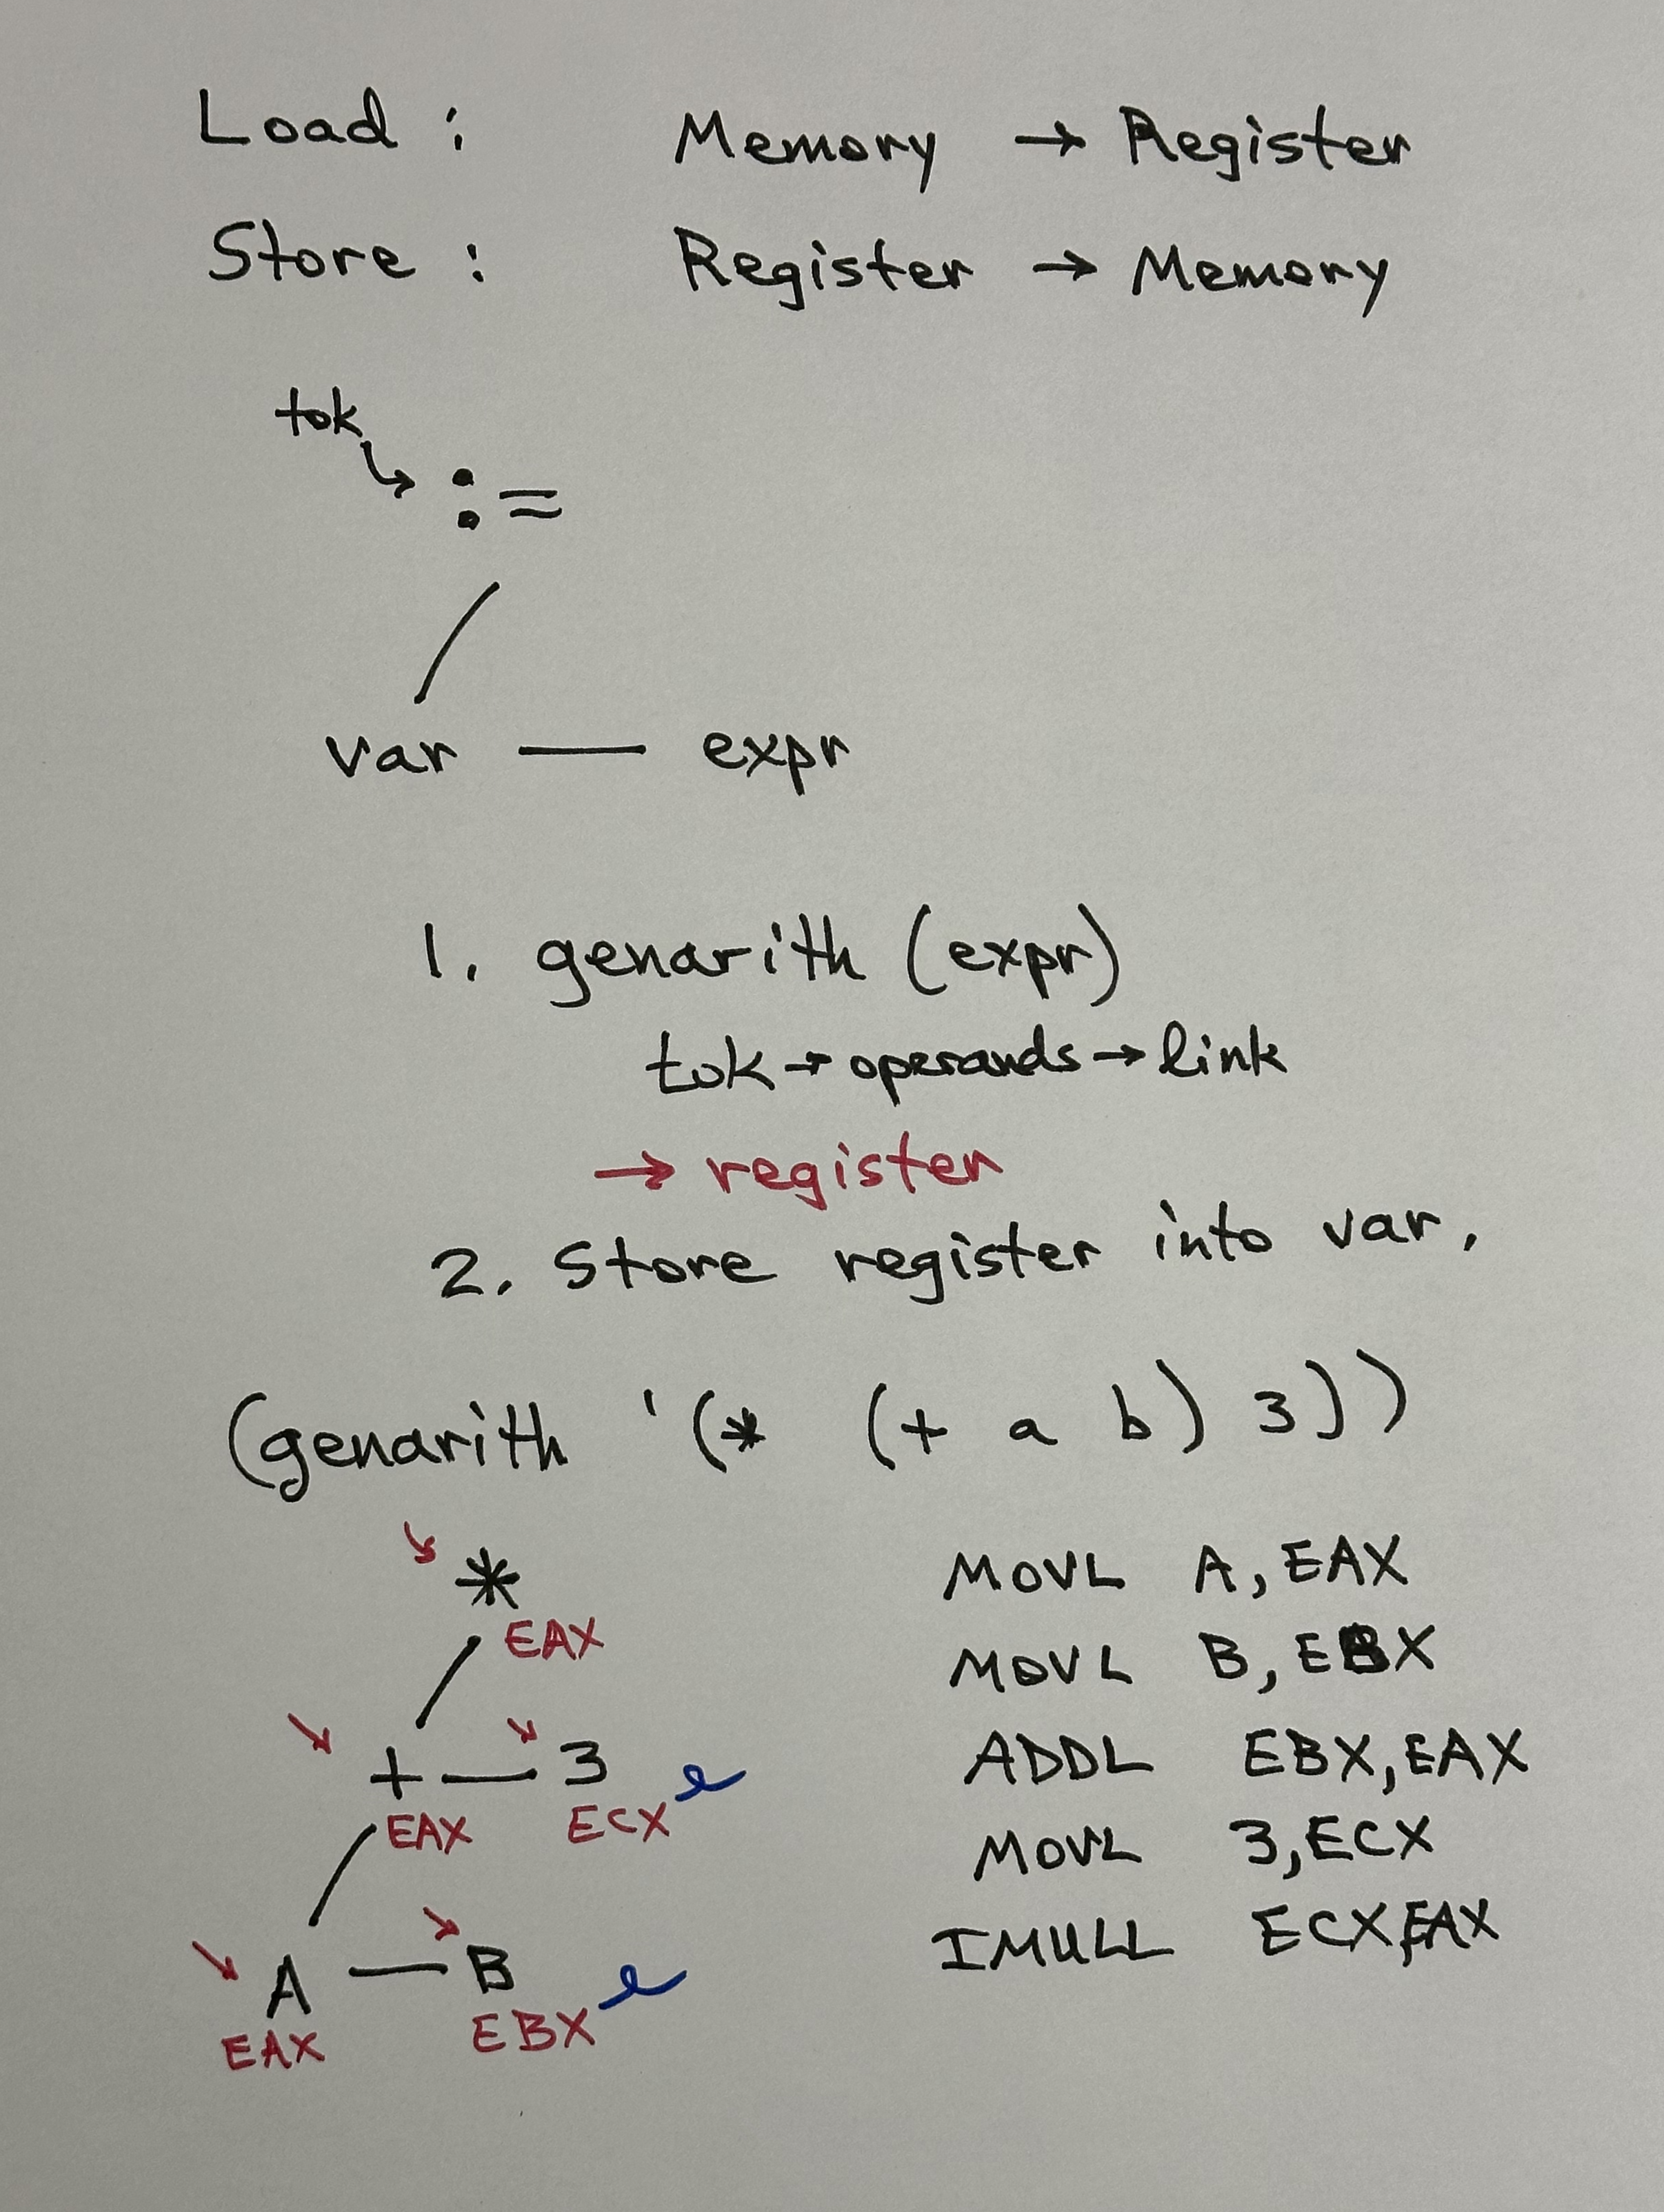 Load : Memory → Register
Store : Register → Memory
tok
:=
var — expr
1. genarith (expr)
tok → operands → link
→ register
2. Store register into var.
(genarith '(* (+ a b) 3))
*
EAX
+ — 3
EAX ECX
A — B
EAX EBX
MOVL A,EAX
MOVL B,EBX
ADDL EBX,EAX
MOVL 3,ECX
IMULL ECX,EAX